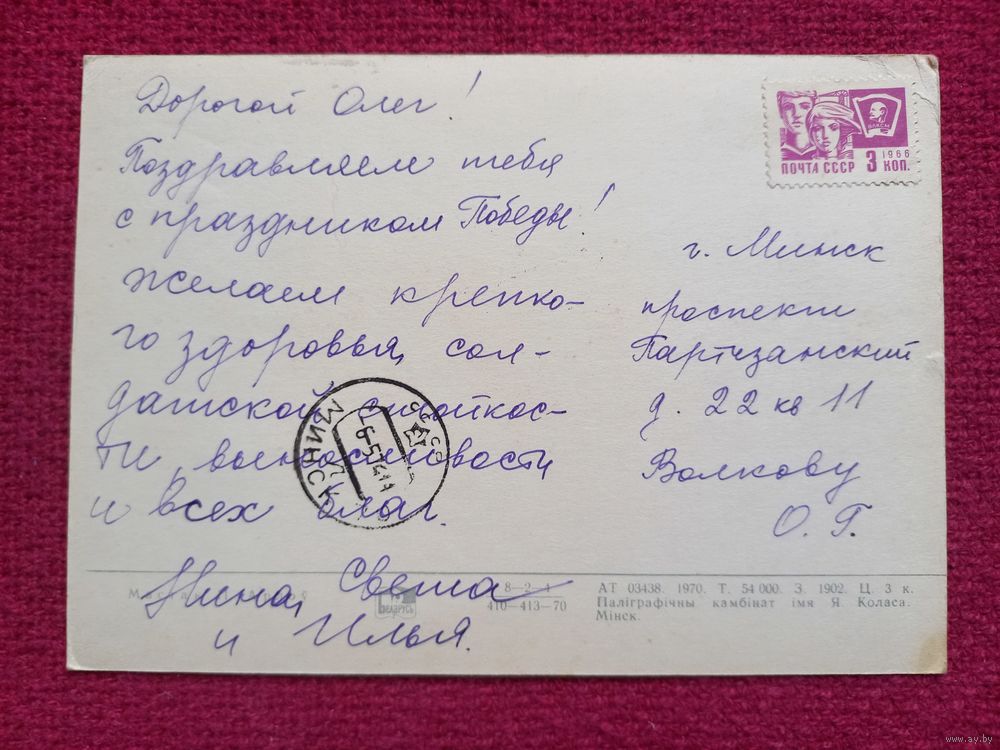 Дорогой Олег!
Поздравляем тебя
с праздником Победы!
желаем крепко-
го здоровья, сол-
датской стойкос-
ти, выносливости
и всех благ.
Нина, Света
и Илья.
ВЛКСМ
1966
ПОЧТА СССР 3 КОП.
г. Минск
проспект
Партизанский
д. 22 кв 11
Волкову
О. Г.
МИНСК
БЕЛАРУСЬ
8—2—1
410—413—70
АТ 03438. 1970. Т. 54 000. З. 1902. Ц. 3 к.
Паліграфічны камбінат імя Я. Коласа.
Мінск.
www.ay.by